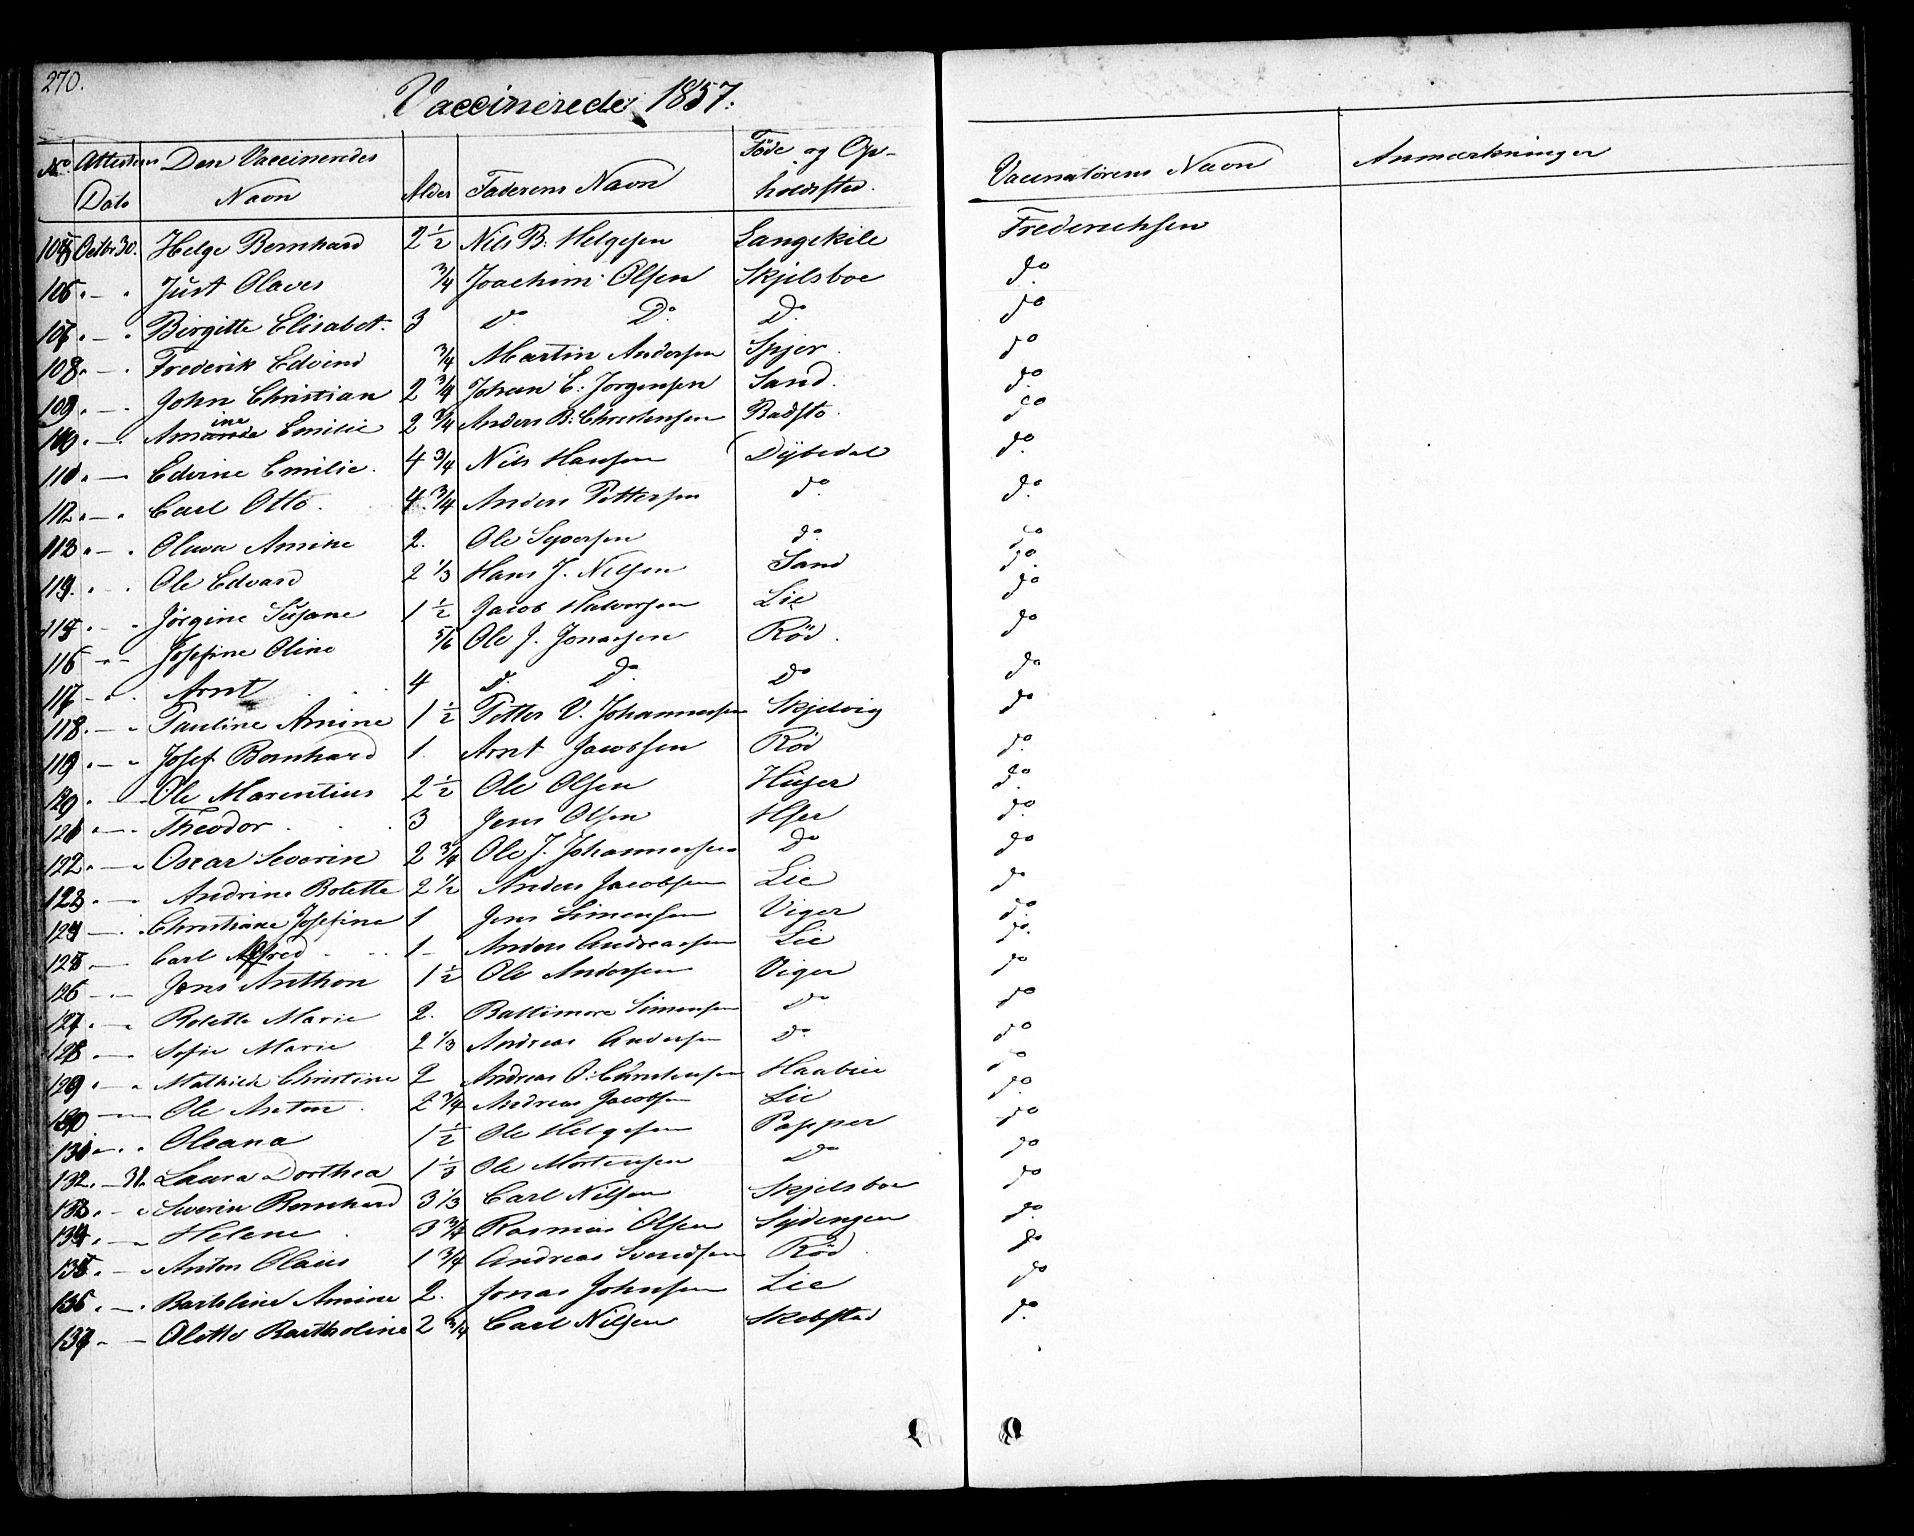 270.
Vaccinerede 1857.
No. Attestens Dato Den Vaccineredes Navn Alder Faderens Navn Föde og Opholdssted. Vaccinatörens Navn Anmærkninger
105 Octbr 30. Helge Bernhard 2 1/2 Nils B. Helgesen Langekile Frederichsen
106 " — " Just Olaves 3/4 Joachim Olsen Skjelsboe do
107 " — " Birgitte Elisabet. 3 do Do Do do
108 " — " Frederik Edvind 3/4 Martin Andersen Spjer do
109 " — " John Christian 2 3/4 Johan C. Jorgensen Sand. do
110 " — " Amandaine Emilie 2 3/4 Anders B. Christensen Badsto. do
111 " — Edvine Emilie. 4 3/4 Nils Hansen Dybedal do
112 " — " Carl Otto. 4 3/4 Anders Pettersen do do
113 " — " Olava Amine 2. Ole Syversen do do
114 " — " Ole Edvard 2 1/3 Hans J. Nilsen Sand do
115 " — " Jörgine Susane 1 1/2 Jacob Halvorsen Lie do
116 " — " Josefine Oline 5/6 Ole J. Jonassen Röd. do
117 — " . Arnt 4 do do do do
118. — " Pauline Amine 1 1/2 Petter V. Johannessen Skjelvig do
119 " — " Josef Bernhard 1. Arnt Jacobsen Röd do
120 " — Ole Marentius 2 1/2 Ole Olsen do
121 " — Theodor 3 Jens Olsen do
122 " — " Oscar Severin 2 3/4 Ole J. Johannessen Do do
123 " — Andrine Bolette 2 1/2 Anders Jacobsen Lie do
124 — . Christiane Josefine 1 Jens Simensen Viger do
125 " — Carl Alfred 1 - Anders Andreassen Lie do
126 - — Jens Anthon 1 1/2 Ole Andersen Viger do
127 " — Bolette Marie 2. Baltimore Simensen Do do
128 " — Sofie Marie 2 1/3 Andreas Andersen do do
129 " — " Mathilde Christine 2 Andreas O. Christensen do
130 — Ole Anton. 2 3/4 Andreas Jacobsen Lie do
131 " — . Oleana 1 1/2 Ole Helgesen Papper do
132. — 31. Laura Dorthea 1 1/3 Ole Mortensen Do do
133. — " Severin Bernhard 3 1/3 Carl Nilsen Skjelsboe do
134 " — " Helene 3 3/4 Rasmus Olsen Sydengen do
135 " — " Anton Olaus 1 3/4 Andreas Svendsen Röd. do
136 " — . Barteline Amine 2. Jonas Johnsen Lie do
137 " — Olette Bartholine 2 3/4 Carl Nilsen Skebstad do